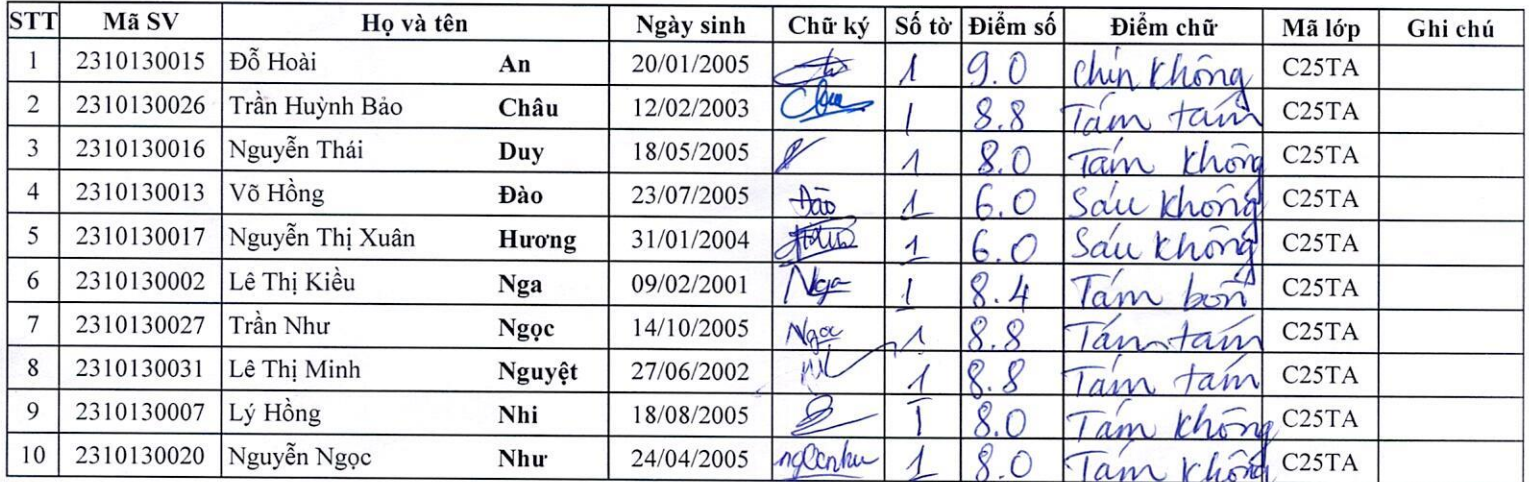 STT Mã SV Họ và tên Ngày sinh Chữ ký Số tờ Điểm số Điểm chữ Mã lớp Ghi chú
1 2310130015 Đỗ Hoài An 20/01/2005 1 9.0 Chín không C25TA
2 2310130026 Trần Huỳnh Bảo Châu 12/02/2003 1 8.8 Tám tám C25TA
3 2310130016 Nguyễn Thái Duy 18/05/2005 1 8.0 Tám không C25TA
4 2310130013 Võ Hồng Đào 23/07/2005 Đào 1 6.0 Sáu không C25TA
5 2310130017 Nguyễn Thị Xuân Hương 31/01/2004 1 6.0 Sáu không C25TA
6 2310130002 Lê Thị Kiều Nga 09/02/2001 Nga 1 8.4 Tám bốn C25TA
7 2310130027 Trần Như Ngọc 14/10/2005 Ngọc 1 8.8 Tám tám C25TA
8 2310130031 Lê Thị Minh Nguyệt 27/06/2002 1 8.8 Tám tám C25TA
9 2310130007 Lý Hồng Nhi 18/08/2005 1 8.0 Tám không C25TA
10 2310130020 Nguyễn Ngọc Như 24/04/2005 1 8.0 Tám không C25TA